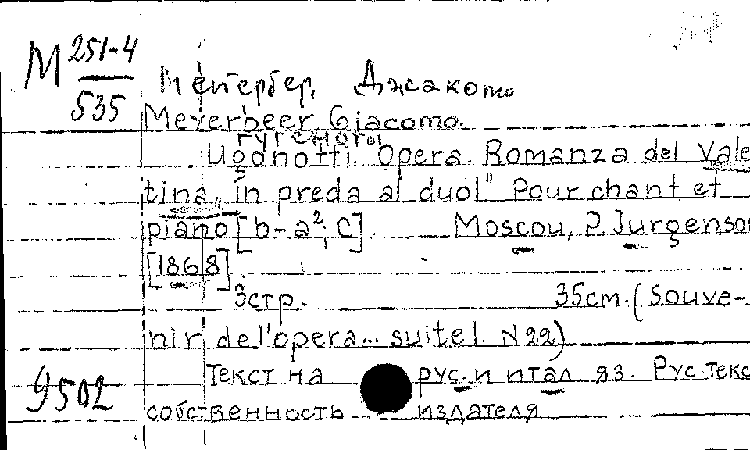 М 251-4
535
Мейербер, Джакомо
Meyerbeer, Giacomo.
Гугеноты
Ugonotti. Opera. Romanza del Vale
tina „in preda al duol" Pour chant et
piano [b-a², C] Moscou, P. Jurgenson
[1868].
3стр. 35см. (Souve-
nir de l'opera... suite 1. N 22)
Текст на рус. и итал яз. Рус. текс
9502
собственность издателя